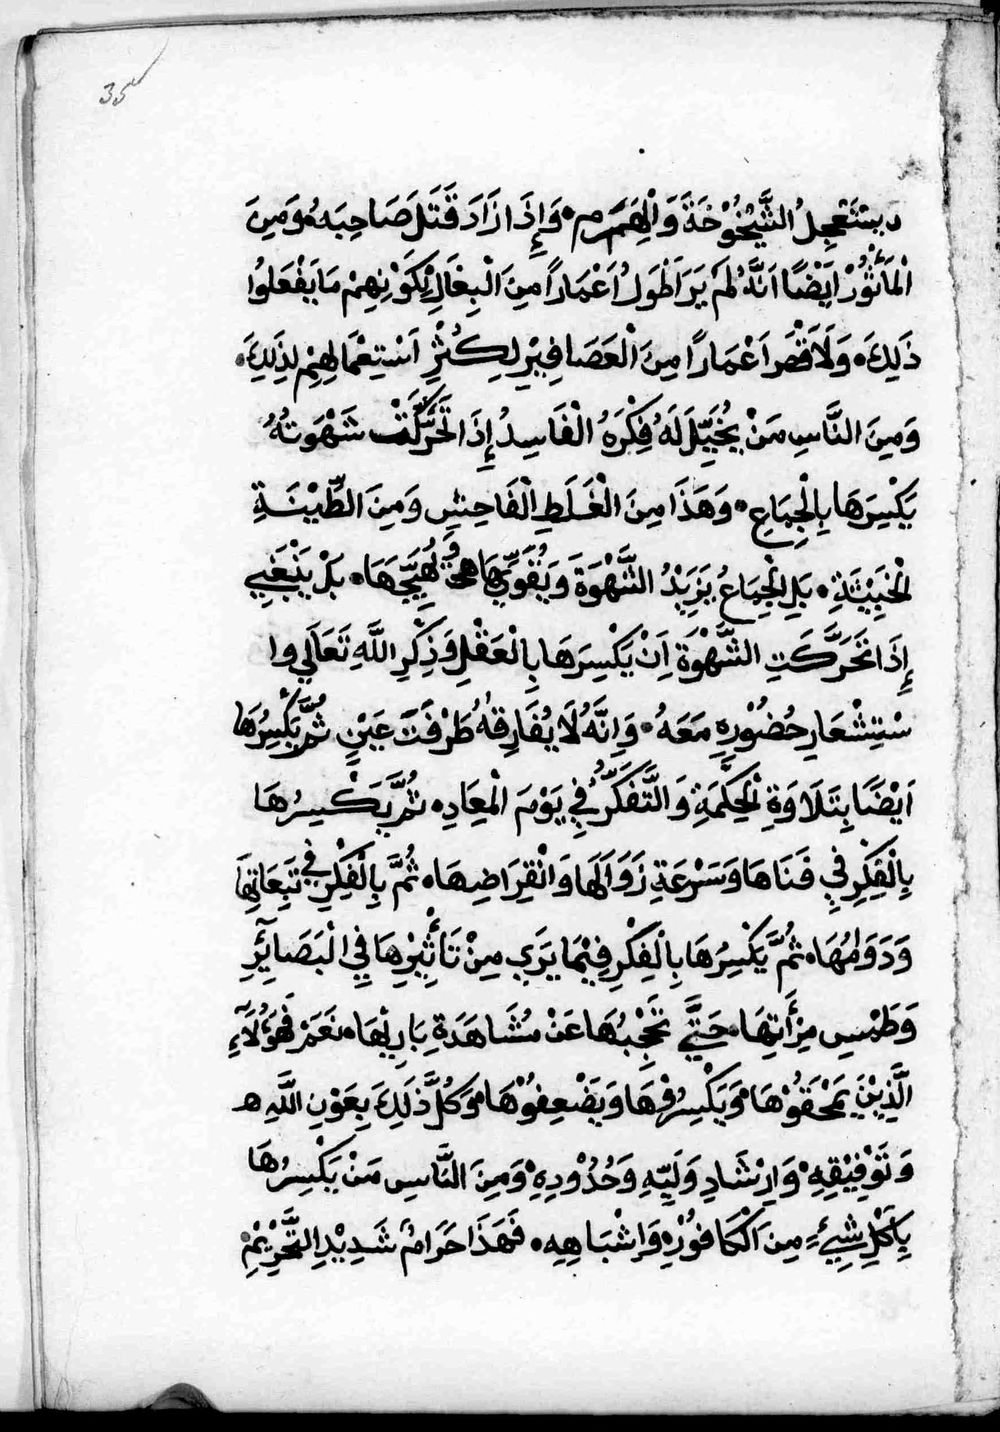 35
ويستنعجل الشَّيْخُوْخَةَ وَالْهَرَم وَإِذَا زَادَ قَتَلَ صَاحِبَهُ وَمِنَ
الْمَأْثُوْرْ اَيْضًا اَنَّهُ لَمْ يَرَ اَطْوَلُ اَعْمَارًا مِنَ الْبِغَالِ لِكَوْنِهِمْ مَا يَفْعَلُوا
ذَلِكَ وَلَا اَقْصَر اَعْمَارًا مِنَ الْعَصَافِيْرِ لِكُثْرِ اَسْتِعْمَالِهِمْ لِذَلِكَ
وَمِنَ النَّاسِ مَنْ يُخَيِّلَ لَهُ فِكْرَهُ الْفَاسِدُ إِذَا تَحَرَّكَتْ شَهْوَتُهُ
يَكْسِرَهَا بِالْجِمَاعِ وَهَذَا مِنَ الْغَلَطِ الْفَاحِشِ وَمِنَ الطِّيْنَةِ
الْخَبِيْثَةِ بَلِ الْجِمَاعُ يَزِيْدُ الشَّهْوَةَ وَيُقَوِّيْهَا وَيُهَيِّجُهَا بَلْ يَنْبَغِي
إِذَا تَحَرَّكَتِ الشَّهْوَةِ اَنْ يَكْسِرَهَا بِالْعَقْلِ وَذِكْرِ اللَّهِ تَعَالَي وا
سْتِشْعَارِ حُضُوْرِهِ مَعَهُ وَاِنَّهُ لَا يُفَارِقهُ طَرْفَتَ عَيْنٍ ثُمَّ يَكْسِرُهَا
اَيْضًا بِتَلَاوَةِ الْحِكْمَةِ وَالتَّفَكُّرُ فِي يَوْمَ الْمِعَادِ ثُمَّ يَكْسِرُهَا
بِالْفِكْرِ فِي فَنَاهَا وَسَرْعَةِ زَوَالَهَا وَانْقِرَاضِهَا ثُمَّ بِالْفِكْرِ فِي تَبِعَاتِهَا
وَدَوَامُهَا ثُمَّ يَكْسِرُهَا بِالْفِكْرِ فِيْمَا يَرَي مِنْ تَأْثِيْرِهَا فِي الْبَصَائِرِ
وَطَمْسِ مِرْأَتِهَا حَتَّي تَحْجِبُهَا عَنْ مُشَاهَدَةِ بَارِيْهَا نَعَمْ فَهَؤُلَآءِ
الَّذِيْنَ يَمْحَقُوْهَا وَيَكْسِرُوْهَا وَيَضْعِفُوْهَا وَكُلَّ ذَلِكَ بِعَوْنِ اللَّهِ
وَتَوْفِيْقِهِ وَاِرْشَادِ وَلَيِّهِ وَحُدُوْدِهِ وَمِنَ النَّاسِ مَنْ يَكْسِرُهَا
بِاَكْلِ شِيْءٍ مِنَ الْكَافُوْرِ وَاشْبَاهِهِ فَهَذَا حَرَامٌ شَدِيْدِ التَّحْرِيْمِ